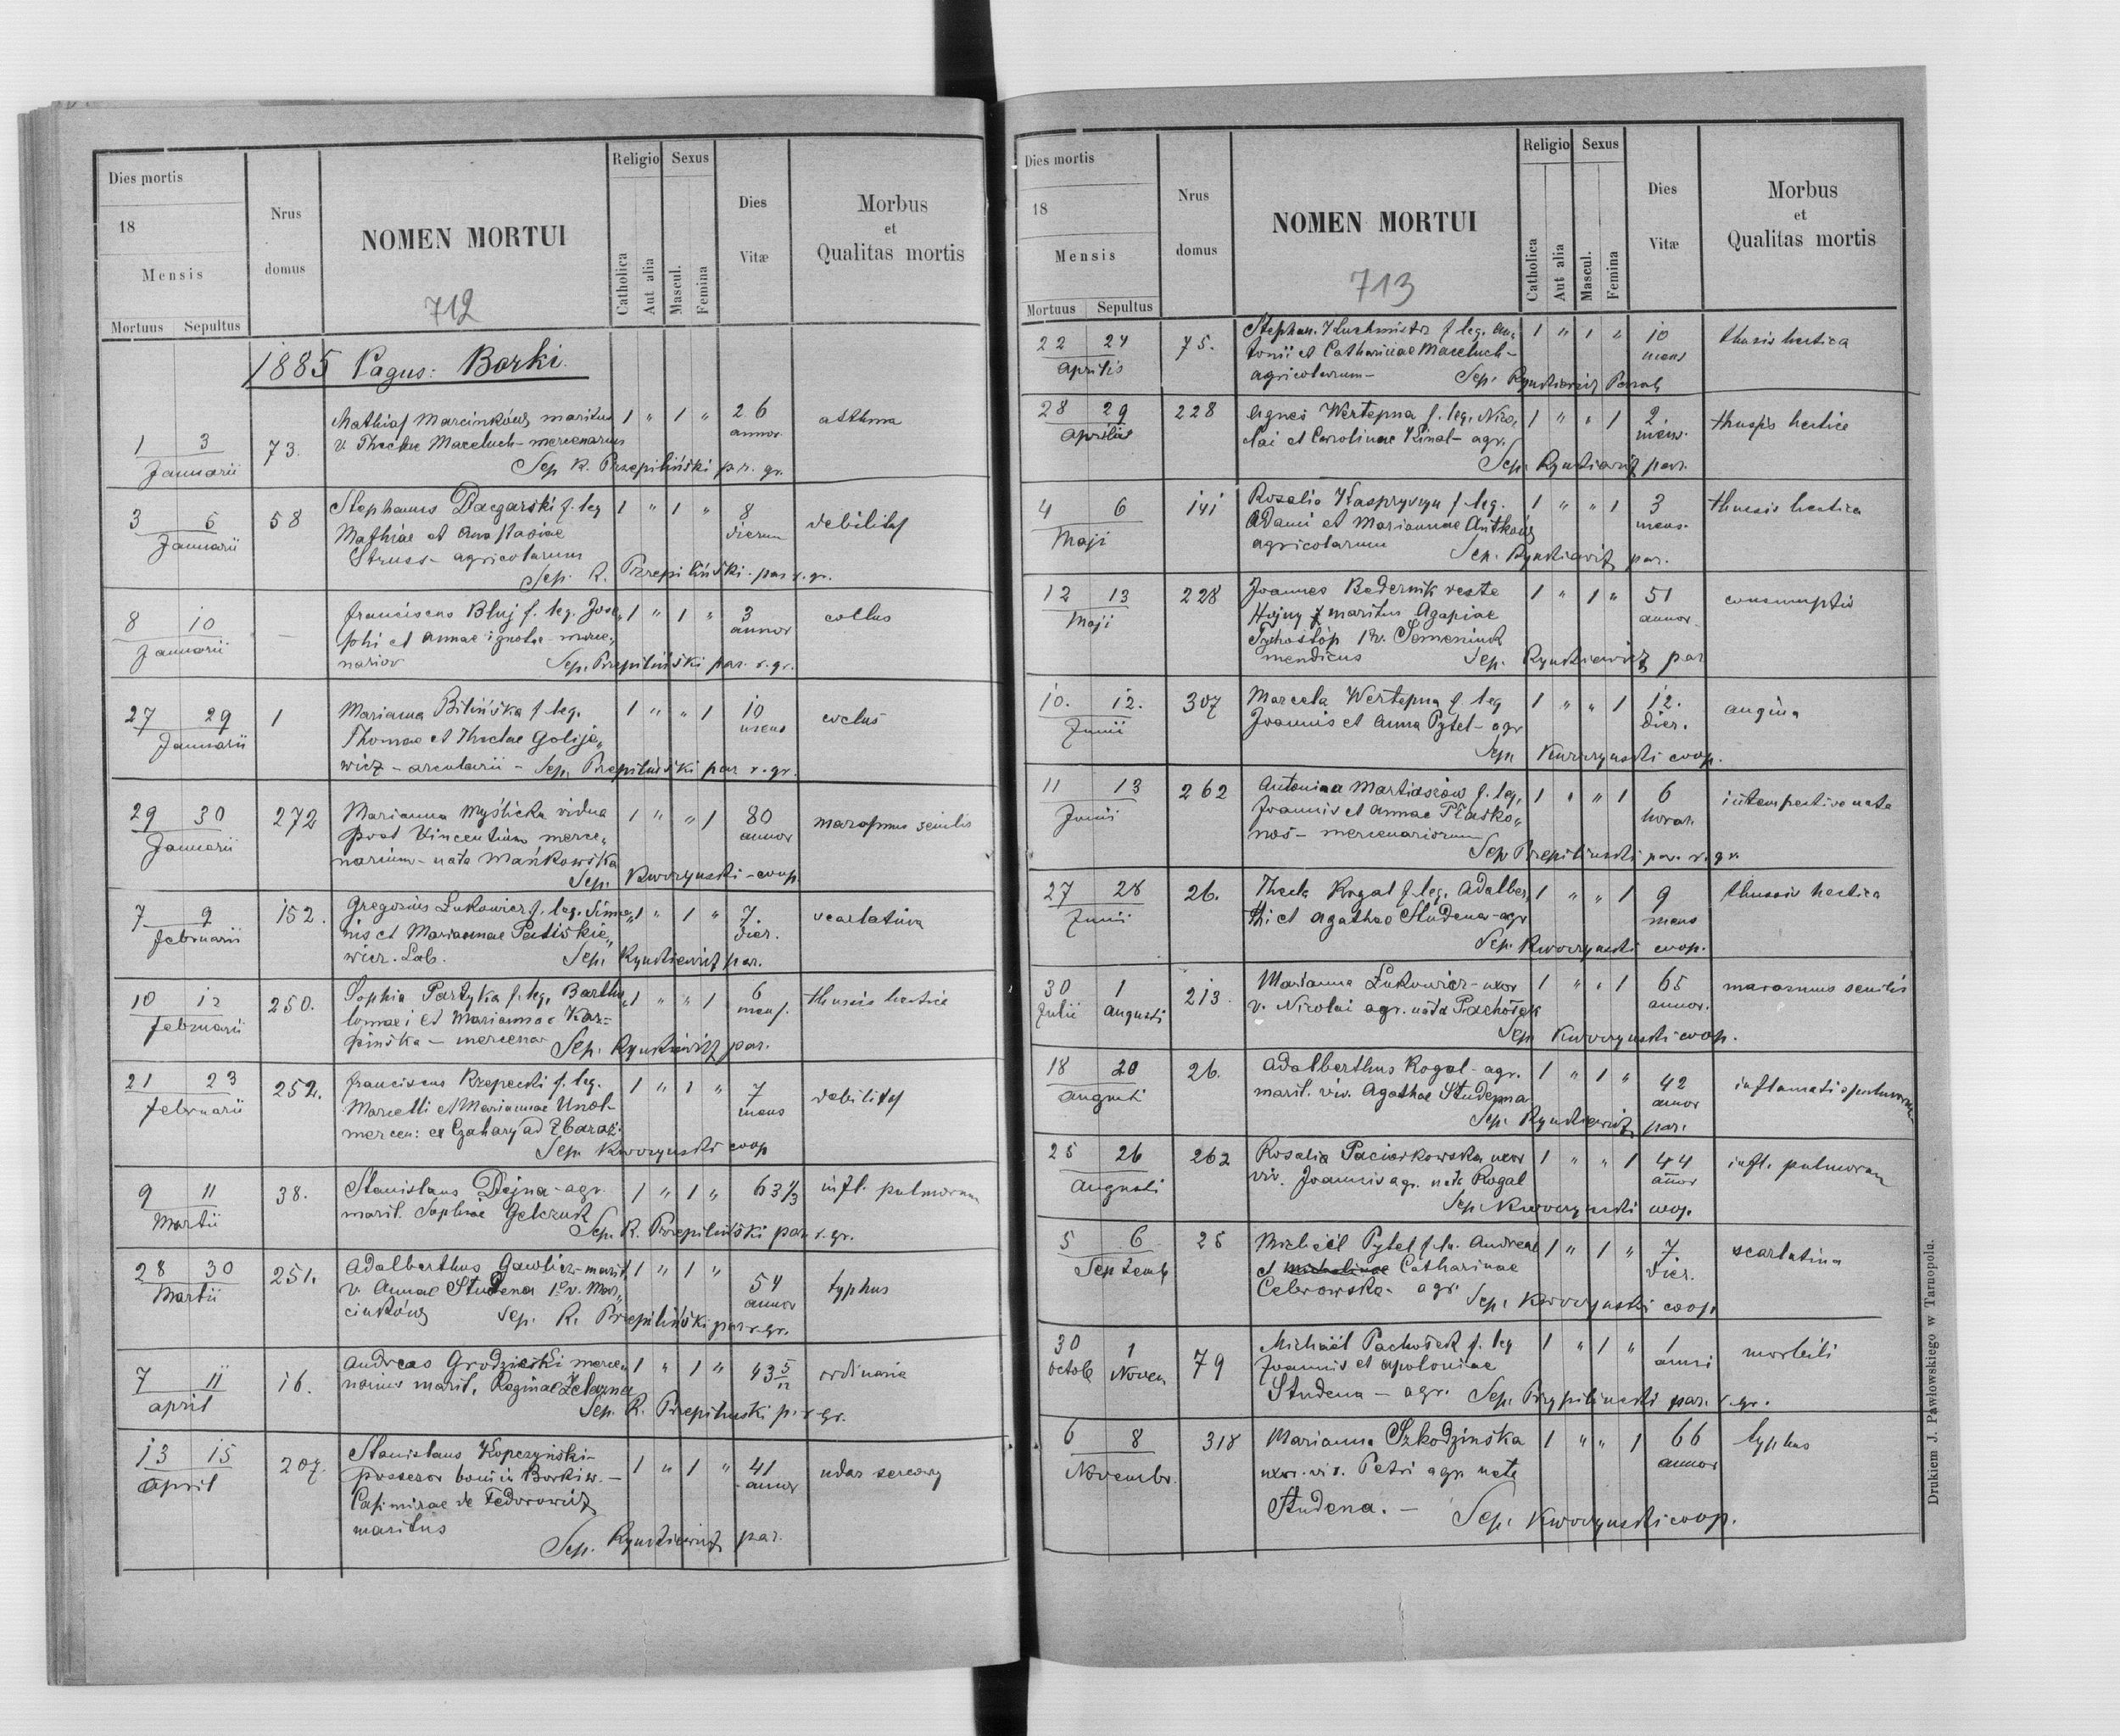 Dies mortis
18
Mensis
Mortuus Sepultus
Nrus domus
NOMEN MORTUI
712
Religio
Catholica
Aut alia
Sexus
Mascul.
Femina
Dies Vitæ
Morbus
et
Qualitas mortis
1885 Pagus: Borki.
1 3 Januarii 73.
Mathias Marcinków maritus 1 " 1 " 26 annor. asthma
v. Theclae Maceluch - mercenarius
Sep R. Przepiliński par. r. gr.
3 5 Januarii 58
Stephanus Daczarski f. leg 1 " 1 " 8 dierum debilitas
Mathiae et Anastasiae
Struss - agricolarum
Sep. R. Przepiliński par. r. gr.
8 10 Januarii —
Franciscus Bluj f. leg. Jose„ 1 " 1 " 3 annor coctus
phi et Annae ignotae - merce„
narior Sep. Przepiliński par. r. gr.
27 29 Januarii 1
Marianna Bilińska f. leg. 1 " " 1 10 mens coctus
Thomae et Theclae Golije„
wicz - arcularii - Sep. Przepiliński par r. gr.
29 30 Januarii 272
Marianna Myślicka vidua 1 " " 1 80 annor marasmus senilis
post Vincentium merce„
narium - nata Mańkowska
Sep. Kworzynski - coop.
7 9 Februarii 152.
Gregorius Łukowicz f. leg. Simeo„ 1 " 1 " 7. dier. scarlatina
nis et Mariannae
wicz. Lab. Sep. par.
10 12 Februarii 250.
Sophia Partyka f. leg. Bartho„ 1 " " 1 6 mens. thussis hectica
lomaei et Mariannae Kar=
pinska - mercenar Sep. par.
21 23 Februarii 252.
Franciscus Krzepecki f. leg. 1 " 1 " 7 mens debilitas
Marcelli et Mariannae Unol-
mercen: ex Czahary ad Zbaraż.
Sep. Kworzynski coop
9 11 Martii 38.
Stanislaus Dejna - agr. 1 " 1 " 63 1/3 infl. pulmorum
marit. Sophiae Gelczuk
Sep. R. Przepiliński par r. gr.
28 30 Martii 251.
Adalberthus Gawlicz - marit. 1 " 1 " 54 annor typhus
v. Annae Studena 1o v. Mar„
cinków Sep. R. Przepiliński par r. gr.
7 11 april 16.
Andreas Grodzicki mercen 1 " 1 " 43 5/12 ordinaria
narius marit. Reginae Żelazna
Sep. R. Przepilinski p. r. gr.
13 15 april 207.
Stanislaus Kopczyński - 1 " 1 " 41 annor udar sercowy
possesor boni in Borki w. -
Casimirae de Fedorowicz
maritus
Sep. par.
Dies mortis
18
Mensis
Mortuus Sepultus
Nrus domus
NOMEN MORTUI
713
Religio
Catholica
Aut alia
Sexus
Mascul.
Femina
Dies Vitæ
Morbus
et
Qualitas mortis
22 24 Aprilis 75.
Stephan. f. leg. An„ 1 " 1 " 10 mens thussis hectica
tonii et Catharinae Maceluch -
agricolarum - Sep. Paroch
28 29 Aprilis 228
Agnes Wertepna f. leg. Nico„ 1 " " 1 2. mens. thussis hectica
lai et Carolinae Kinal - agr.
Sep. par.
4 6 Maji 141
Rosalia Kaspryszyn f. leg. 1 " " 1 3 mens. thussis hectica
Adami et Mariannae Antków
agricolarum Sep. par.
12 13 Maji 228
Joannes Badernik recte 1 " 1 " 51 annor consumptio
Hojny maritus Agapiae
1 v. Semeniuk
mendicus Sep. par
10. 12. Junii 307
Marcela Wertepna f. leg 1 " " 1 12. dier. angina
Joannis et Anna Pytel - agr
Sep. Kworzynski coop.
11 13 Junii 262
Antonina Martiaszów f. leg. 1 " " 1 6 horar. intempestive nata
Joannis et Annae Płasko„
nos - mercenariorum
Sep Przepilinski par. r. gr.
27 28 Junii 26.
Thecla Rogal f. leg. Adalber„ 1 " " 1 9 mens thussis hectica
thi et Agathae Studena - agr
Sep. Kworzynski coop.
30 Julii 1 Augusti 213
Marianna Łukowicz - uxor 1 " " 1 65 annor. marasmus senilis
v. Nicolai agr. nata Pachołek
Sep Kworzynski coop.
18 20 Augusti 26.
Adalberthus Rogal - agr. 1 " 1 " 42 annor inflamatio pulmorum
marit. viv. Agathae Studenna
Sep. par.
25 26 Augusti 262
Rosalia Paciorkowska uxor 1 " " 1 44 annor infl. pulmorum
viv. Joannis agr. nata Rogal
Sep Kworzynski coop.
5 6 Septemb 25
Michaël Pytel f. le. Andreae 1 " 1 " 7. dier. scarlatina
et Catharinae
Cebrowska - agr Sep. Kworzynski coop.
30 Octob 1 Novem 79
Michaël Pachołek f. leg 1 " 1 " 1 anni morbili
Joannis et Apoloniae
Studena - agr. Sep. Przypilinski par. r. gr.
6 8 Novembr. 318
Marianna Szkodzinska 1 " " 1 66 annor typhus
uxor. viv. Petri agr. nata
Studena. - Sep. Kworzynski coop.
Drukiem J. Pawłowskiego w Tarnopolu.